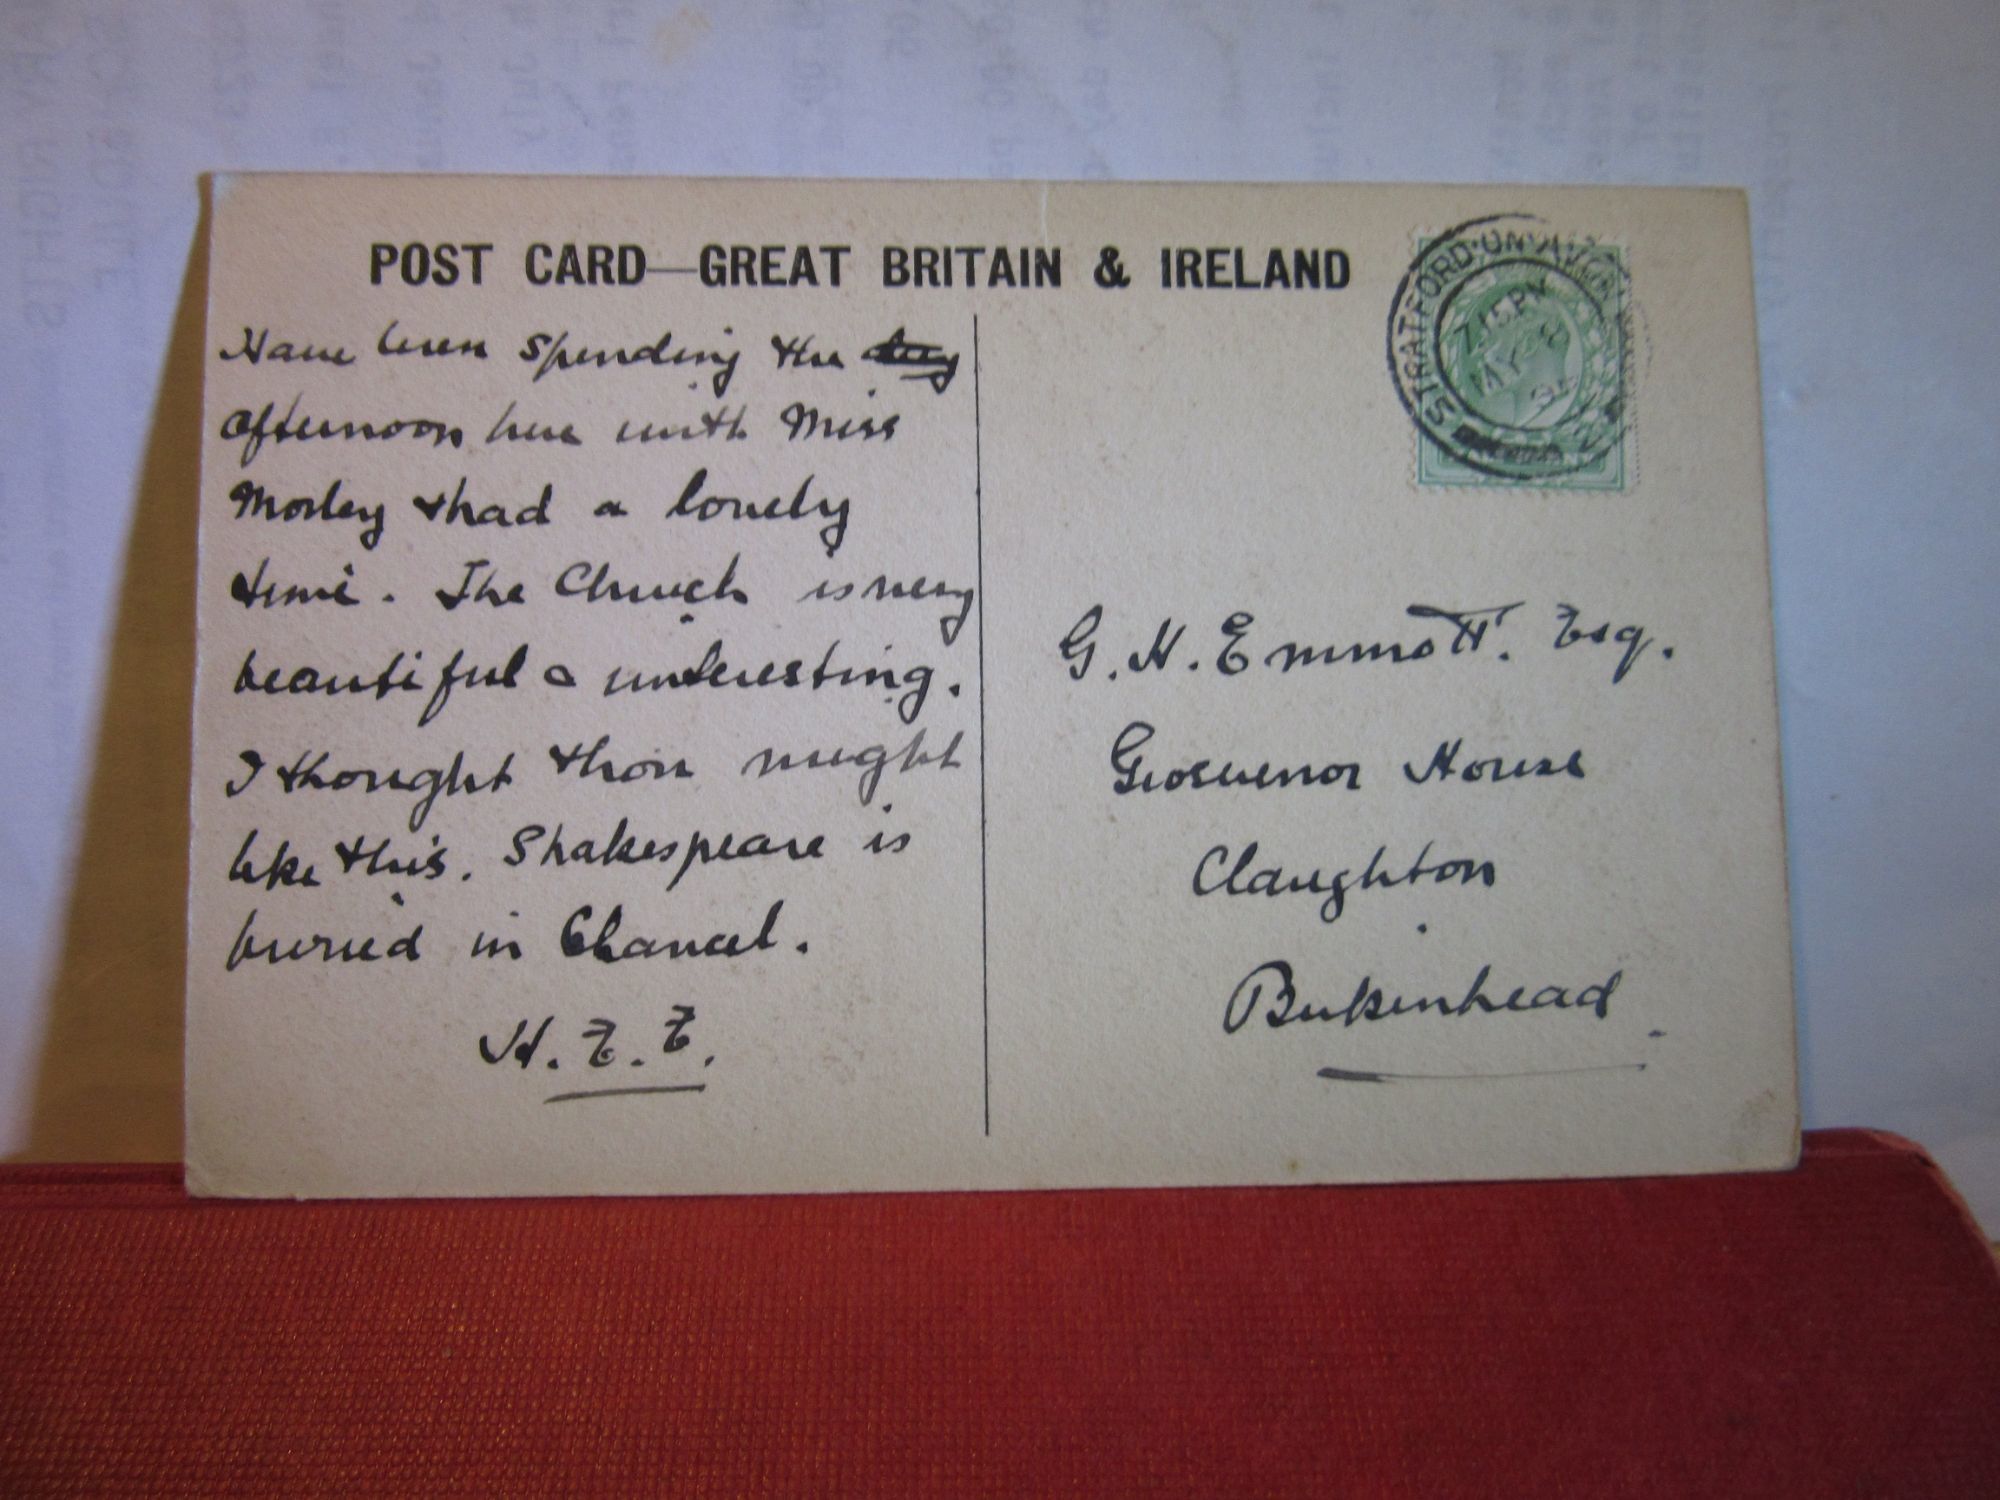 POST CARD—GREAT BRITAIN & IRELAND
Have been spending the day
afternoon here with Miss
Morley & had a lovely
time. The Church is very
beautiful & interesting.
I thought thou might
like this. Shakespeare is
buried in Chancel.
H. E. E.
STRATFORD-ON-AVON
7.15PM
MY 8
G. H. Emmott. Esq.
Grosvenor House
Claughton
Birkenhead